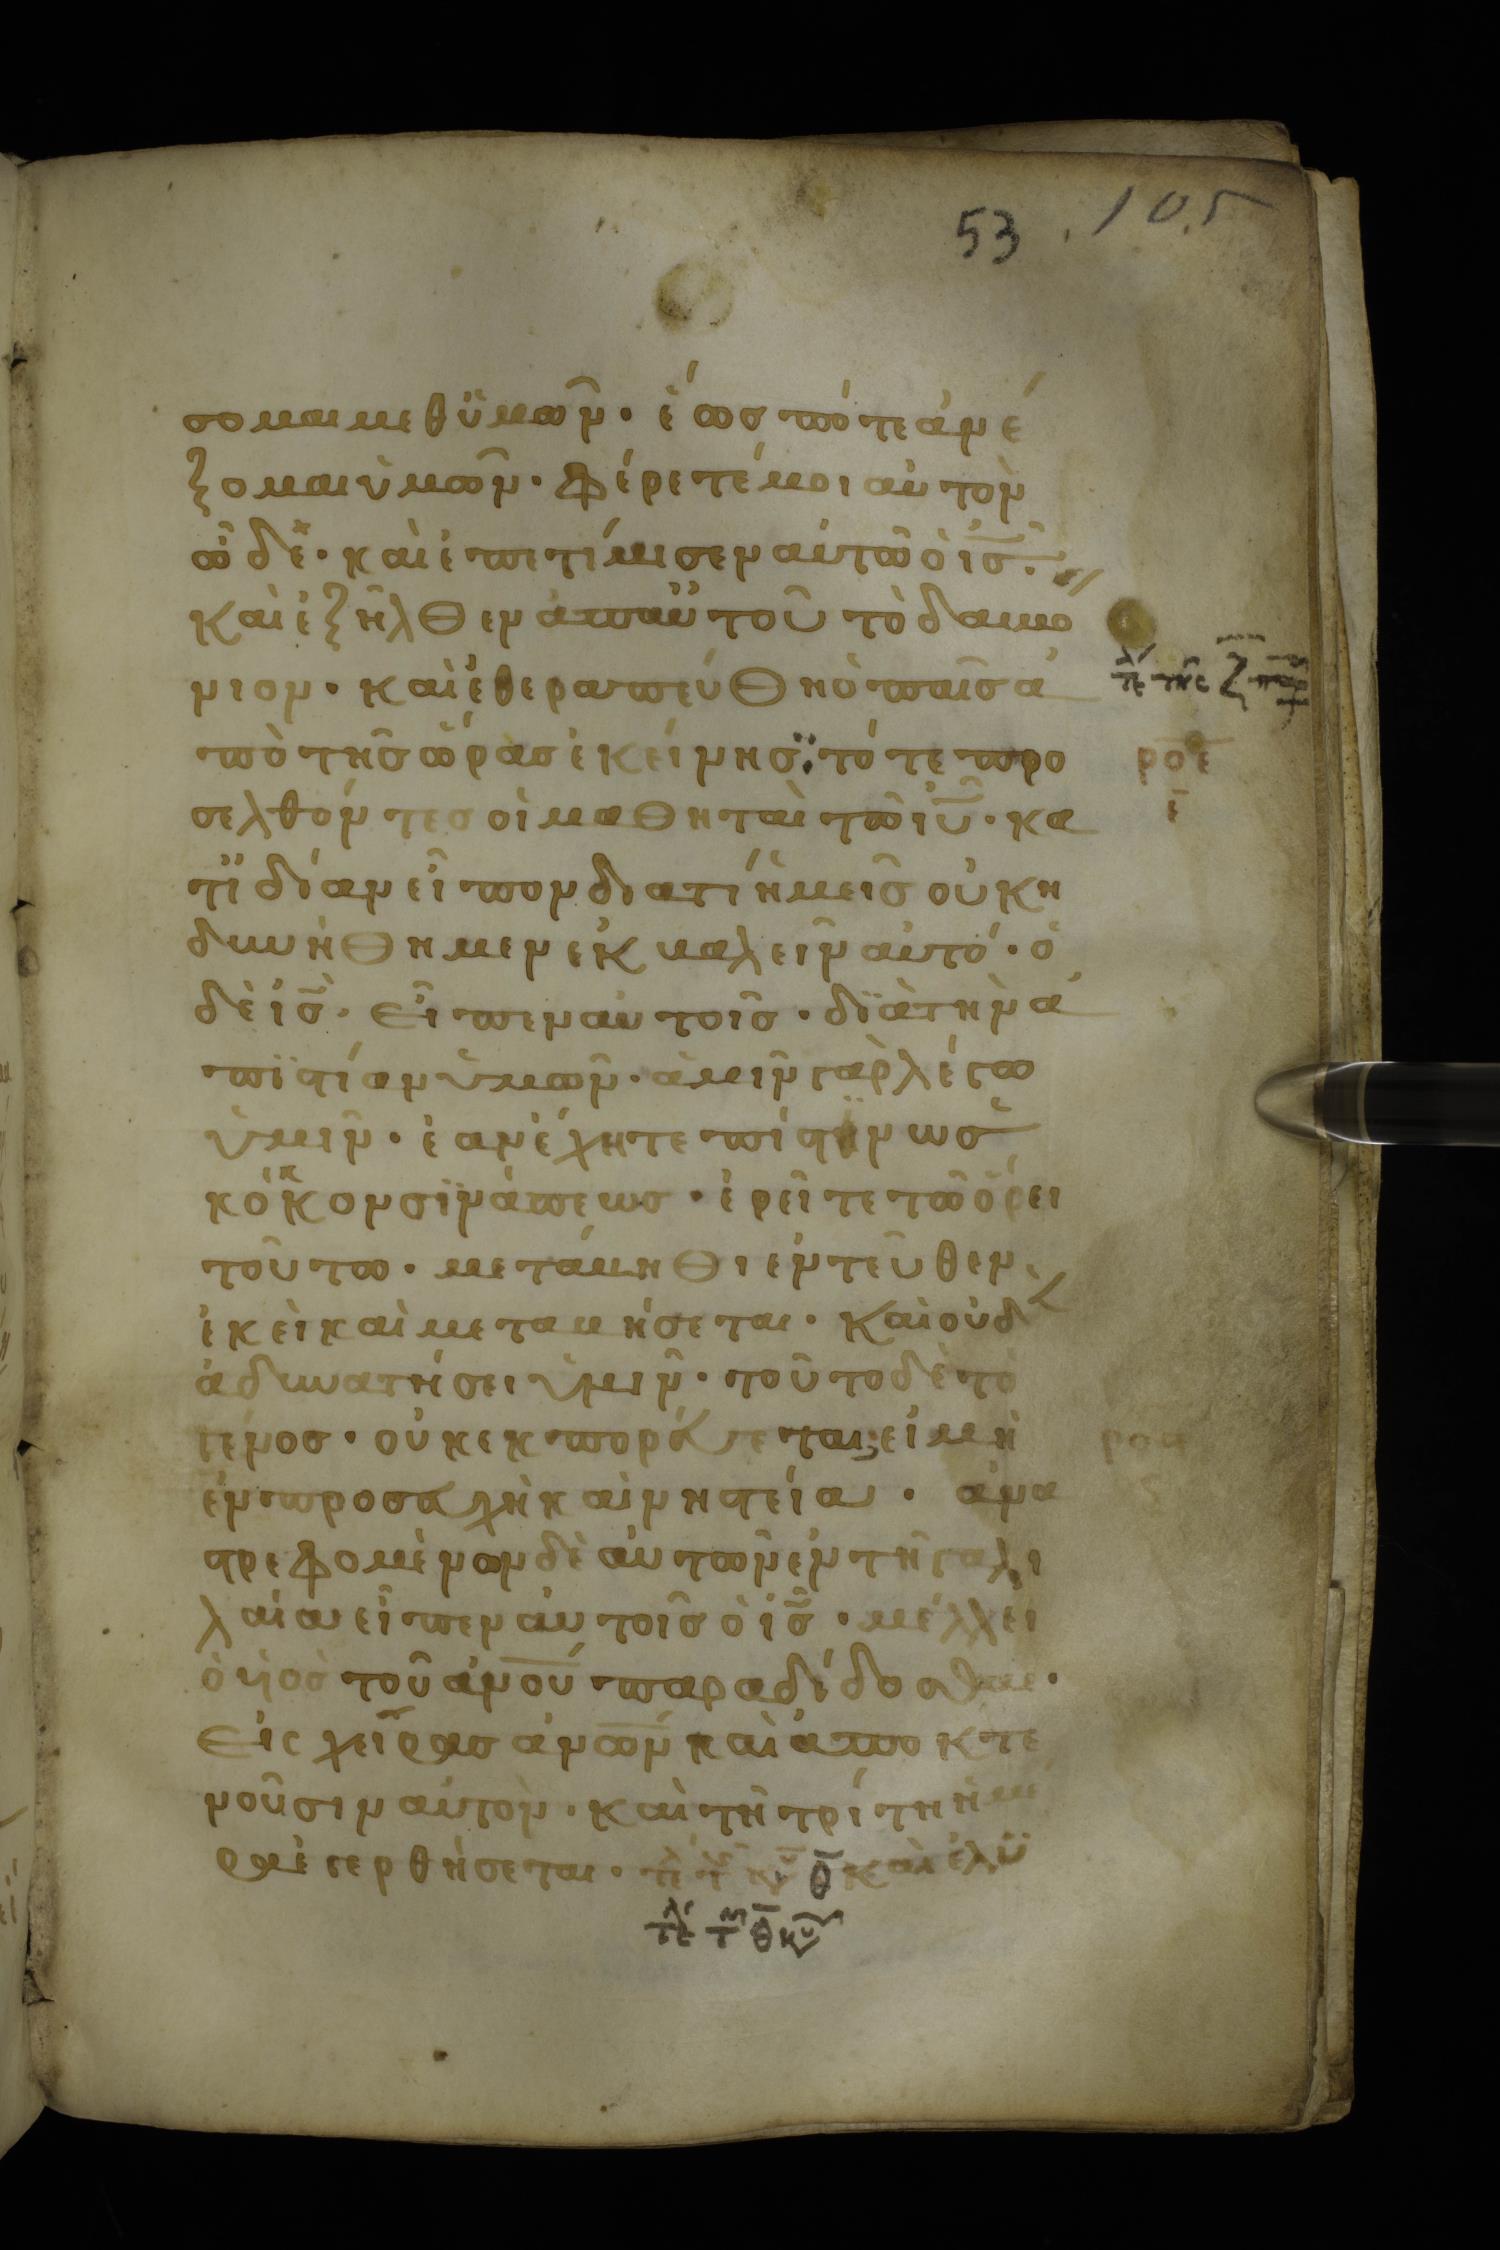 53 . 105
σομαι μεθ ὑμῶν · ἕως πότε ἀνέ
ξομαι ὑμῶν · φέρετέ μοι αὐτὸν
ὧδε · καὶ ἐπετίμισεν αὐτῶ ὁ ις̅ ·
καὶ ἐξῆλθεν ἀπ αὐτοῦ τὸ δαιμό
νιον · καὶ ἐθεραπεύθη ὁ παῖς ἀ
πὸ τῆς ὥρας ἐκείνης : τότε προ
σελθόντες οἱ μαθηταὶ τῶ ιυ̅ · κα
τϊδίαν εἶπον διατί ἡμεῖς οὐκ η
δυνήθημεν ἐκβαλεῖν αὐτό · ὁ
δὲ ις̅ · εἶπεν αὐτοῖς · διὰ τὴν ἀ
πϊστίαν ὑμῶν · ἀμὴν γὰρ λέγω
ὑμῖν · ἐὰν ἔχητε πίστιν ὡς
κόκκον σινάπεως · ἐρεῖτε τῶ ὄρει
τούτω · μετάβηθι ἐντεῦθεν
ἐκεῖ καὶ μεταβήσεται · καὶ οὐδὲν
ἀδυνατήσει ὑμῖν · τοῦτο δὲ τὸ
γένος · οὐκ ἐκπορεύεται, εἰ μὴ
ἐν προσευχῆ καὶ νηστεία · ἀνα
στρεφομένων δὲ αὐτῶν ἐν τῆ γαλι
λαία εἶπεν αὐτοῖς ὁ ις̅ · μέλλει
ὁ υἱὸς τοῦ ανου̅ παραδίδοσθαι ·
εἰς χεῖρας ανω̅ν καὶ ἀποκτε
νοῦσιν αὐτὸν · καὶ τῆ τρίτη ἡμέ
ρα ἐγερθήσεται · καὶ ἐλυ
ροε
τε τ θ κυ